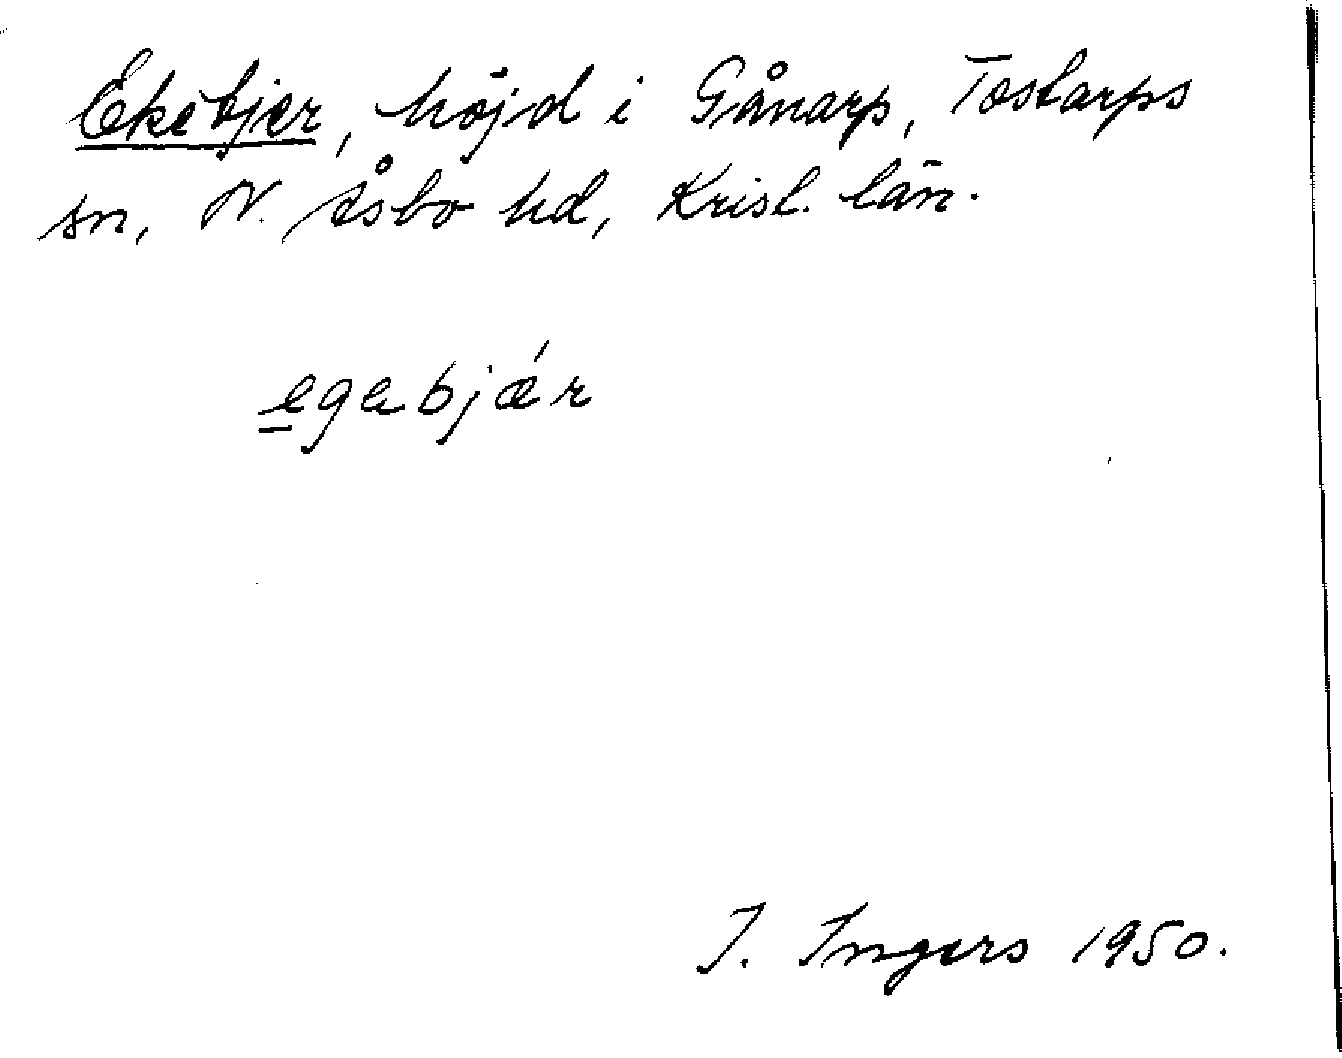 Ekebjer, höjd i Gånarp, Tostarps
sn, N. Åsbo hd, Krist. län.
egabjǽr
I. Ingers 1950.